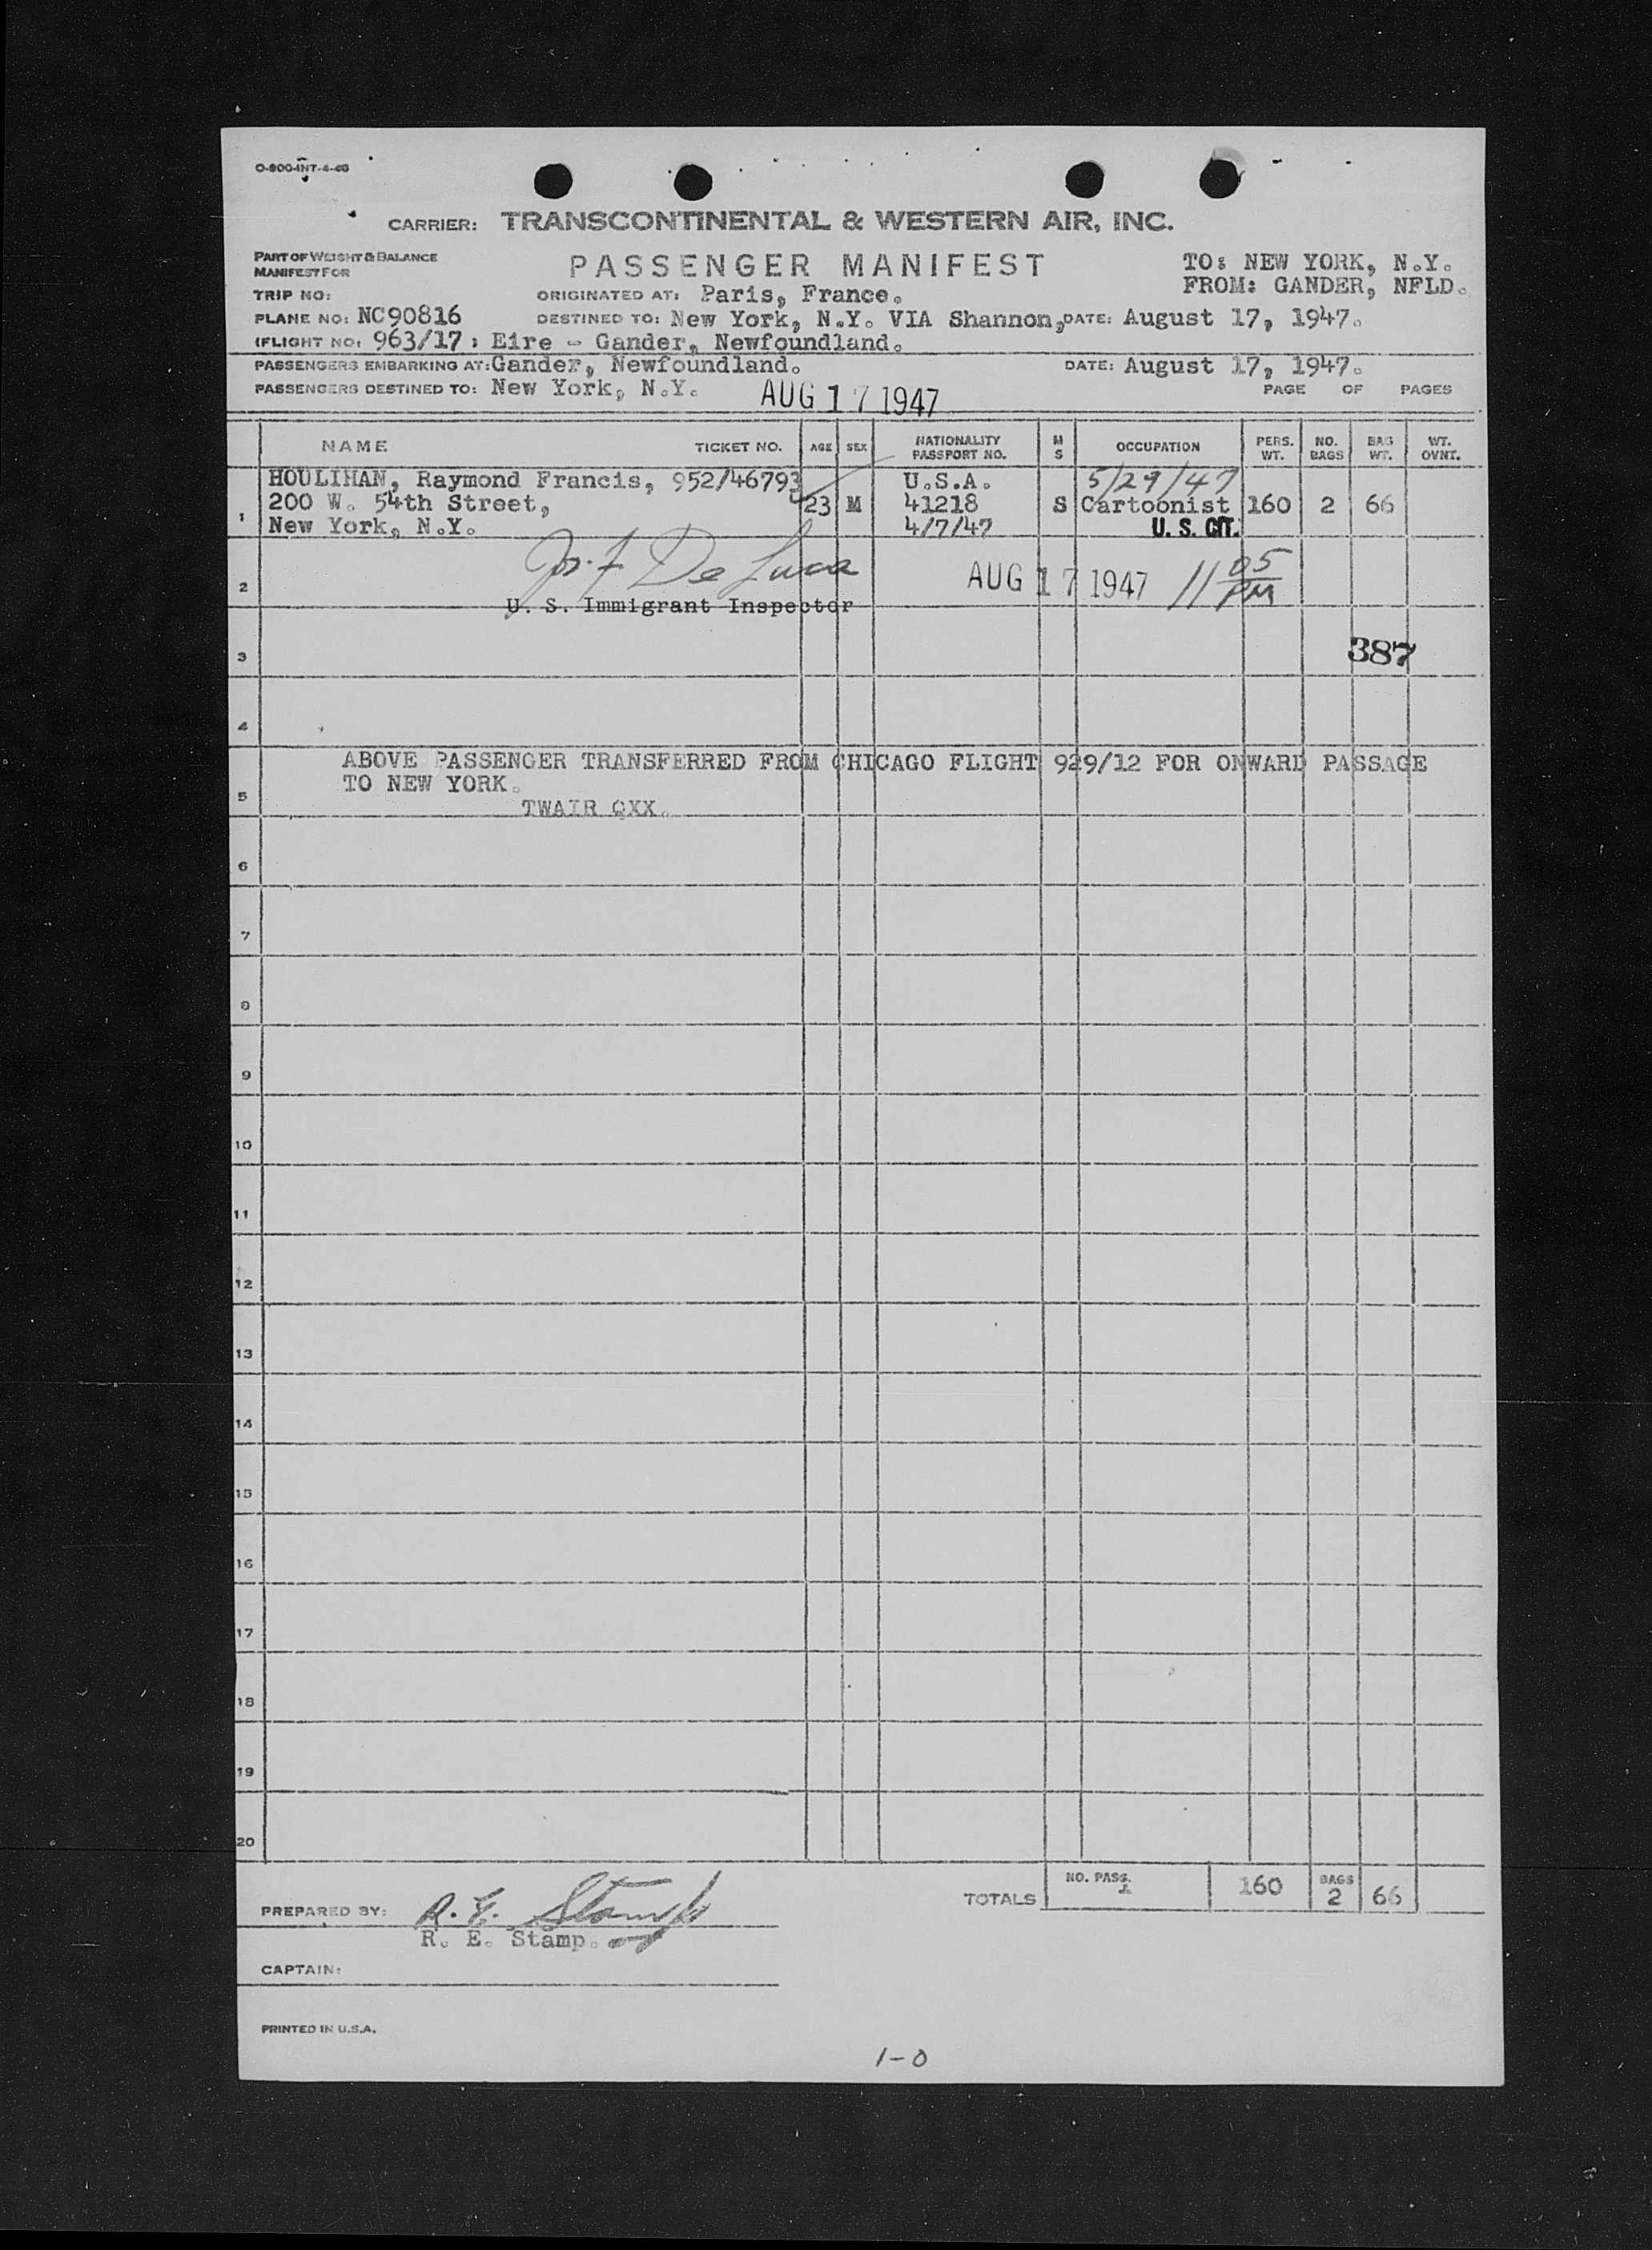 O-800-INT-4-46
CARRIER: TRANSCONTINENTAL & WESTERN AIR, INC.
PART OF WEIGHT & BALANCE
MANIFEST FOR
PASSENGER MANIFEST
TO: NEW YORK, N.Y.
FROM: GANDER, NFLD.
TRIP NO:
ORIGINATED AT: Paris, France.
PLANE NO: NC90816 DESTINED TO: New York, N.Y. VIA Shannon, DATE: August 17, 1947.
(FLIGHT NO: 963/17 : Eire - Gander, Newfoundland.
PASSENGERS EMBARKING AT: Gander, Newfoundland. DATE: August 17, 1947.
PASSENGERS DESTINED TO: New York, N.Y. AUG 17 1947 PAGE OF PAGES
NAME TICKET NO. AGE SEX NATIONALITY PASSPORT NO. M S OCCUPATION PERS. WT. NO. BAGS BAG WT. WT. OVNT.
HOULIHAN, Raymond Francis, 952/46793 U.S.A. 5/29/47
200 W. 54th Street, 23 M 41218 S Cartoonist 160 2 66
1 New York, N.Y. 4/7/47 U. S. CIT.
Jos. F De Luca
2 AUG 17 1947 11 05 PM
U. S. Immigrant Inspector
3 387
4
ABOVE PASSENGER TRANSFERRED FROM CHICAGO FLIGHT 929/12 FOR ONWARD PASSAGE
TO NEW YORK.
5
TWAIR QXX.
6
7
8
9
10
11
12
13
14
15
16
17
18
19
20
TOTALS NO. PASS. 1 160 BAGS 2 66
PREPARED BY: R. E. Stamp
R. E. Stamp.
CAPTAIN:
PRINTED IN U.S.A.
1-0